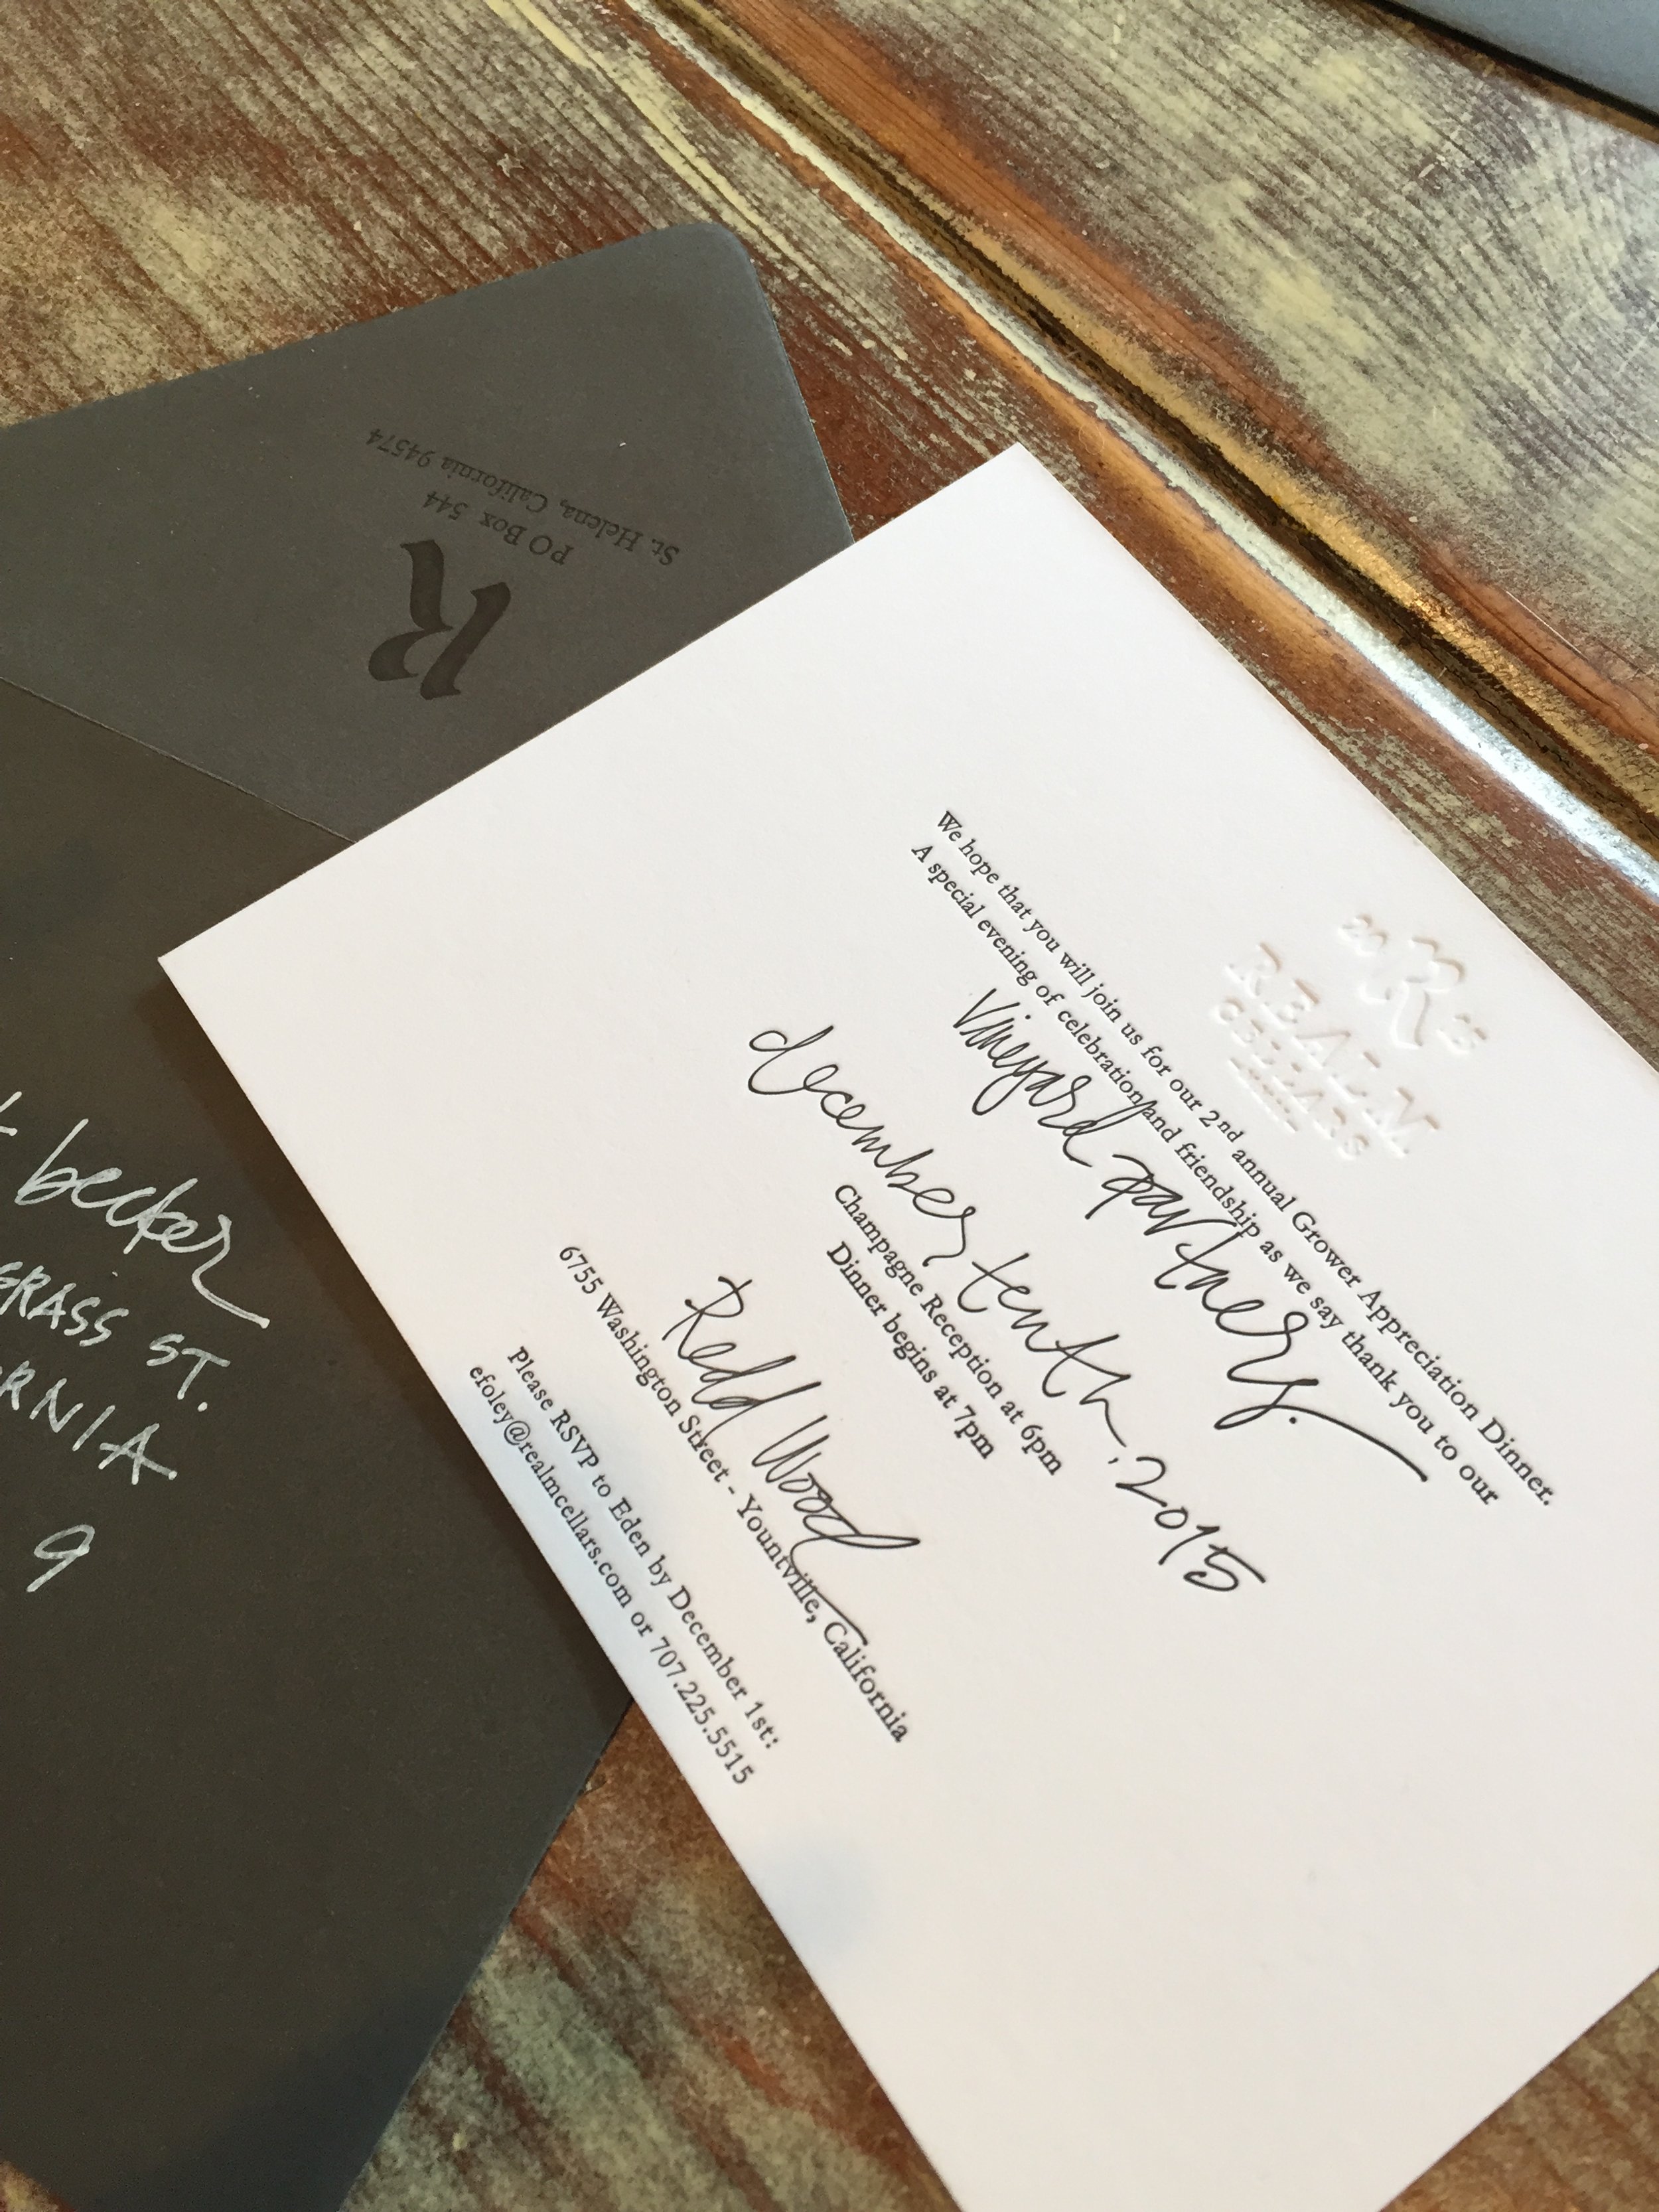 20 R 15
REALM
CELLARS
We hope that you will join us for our 2nd annual Grower Appreciation Dinner.
A special evening of celebration and friendship as we say thank you to our
vineyard partners.
december tenth, 2015
Champagne Reception at 6pm
Dinner begins at 7pm
Redd Wood
6755 Washington Street - Yountville, California
Please RSVP to Eden by December 1st:
efoley@realmcellars.com or 707.225.5515
R
PO Box 544
St. Helena, California 94574
becker
GRASS ST.
RNIA
9